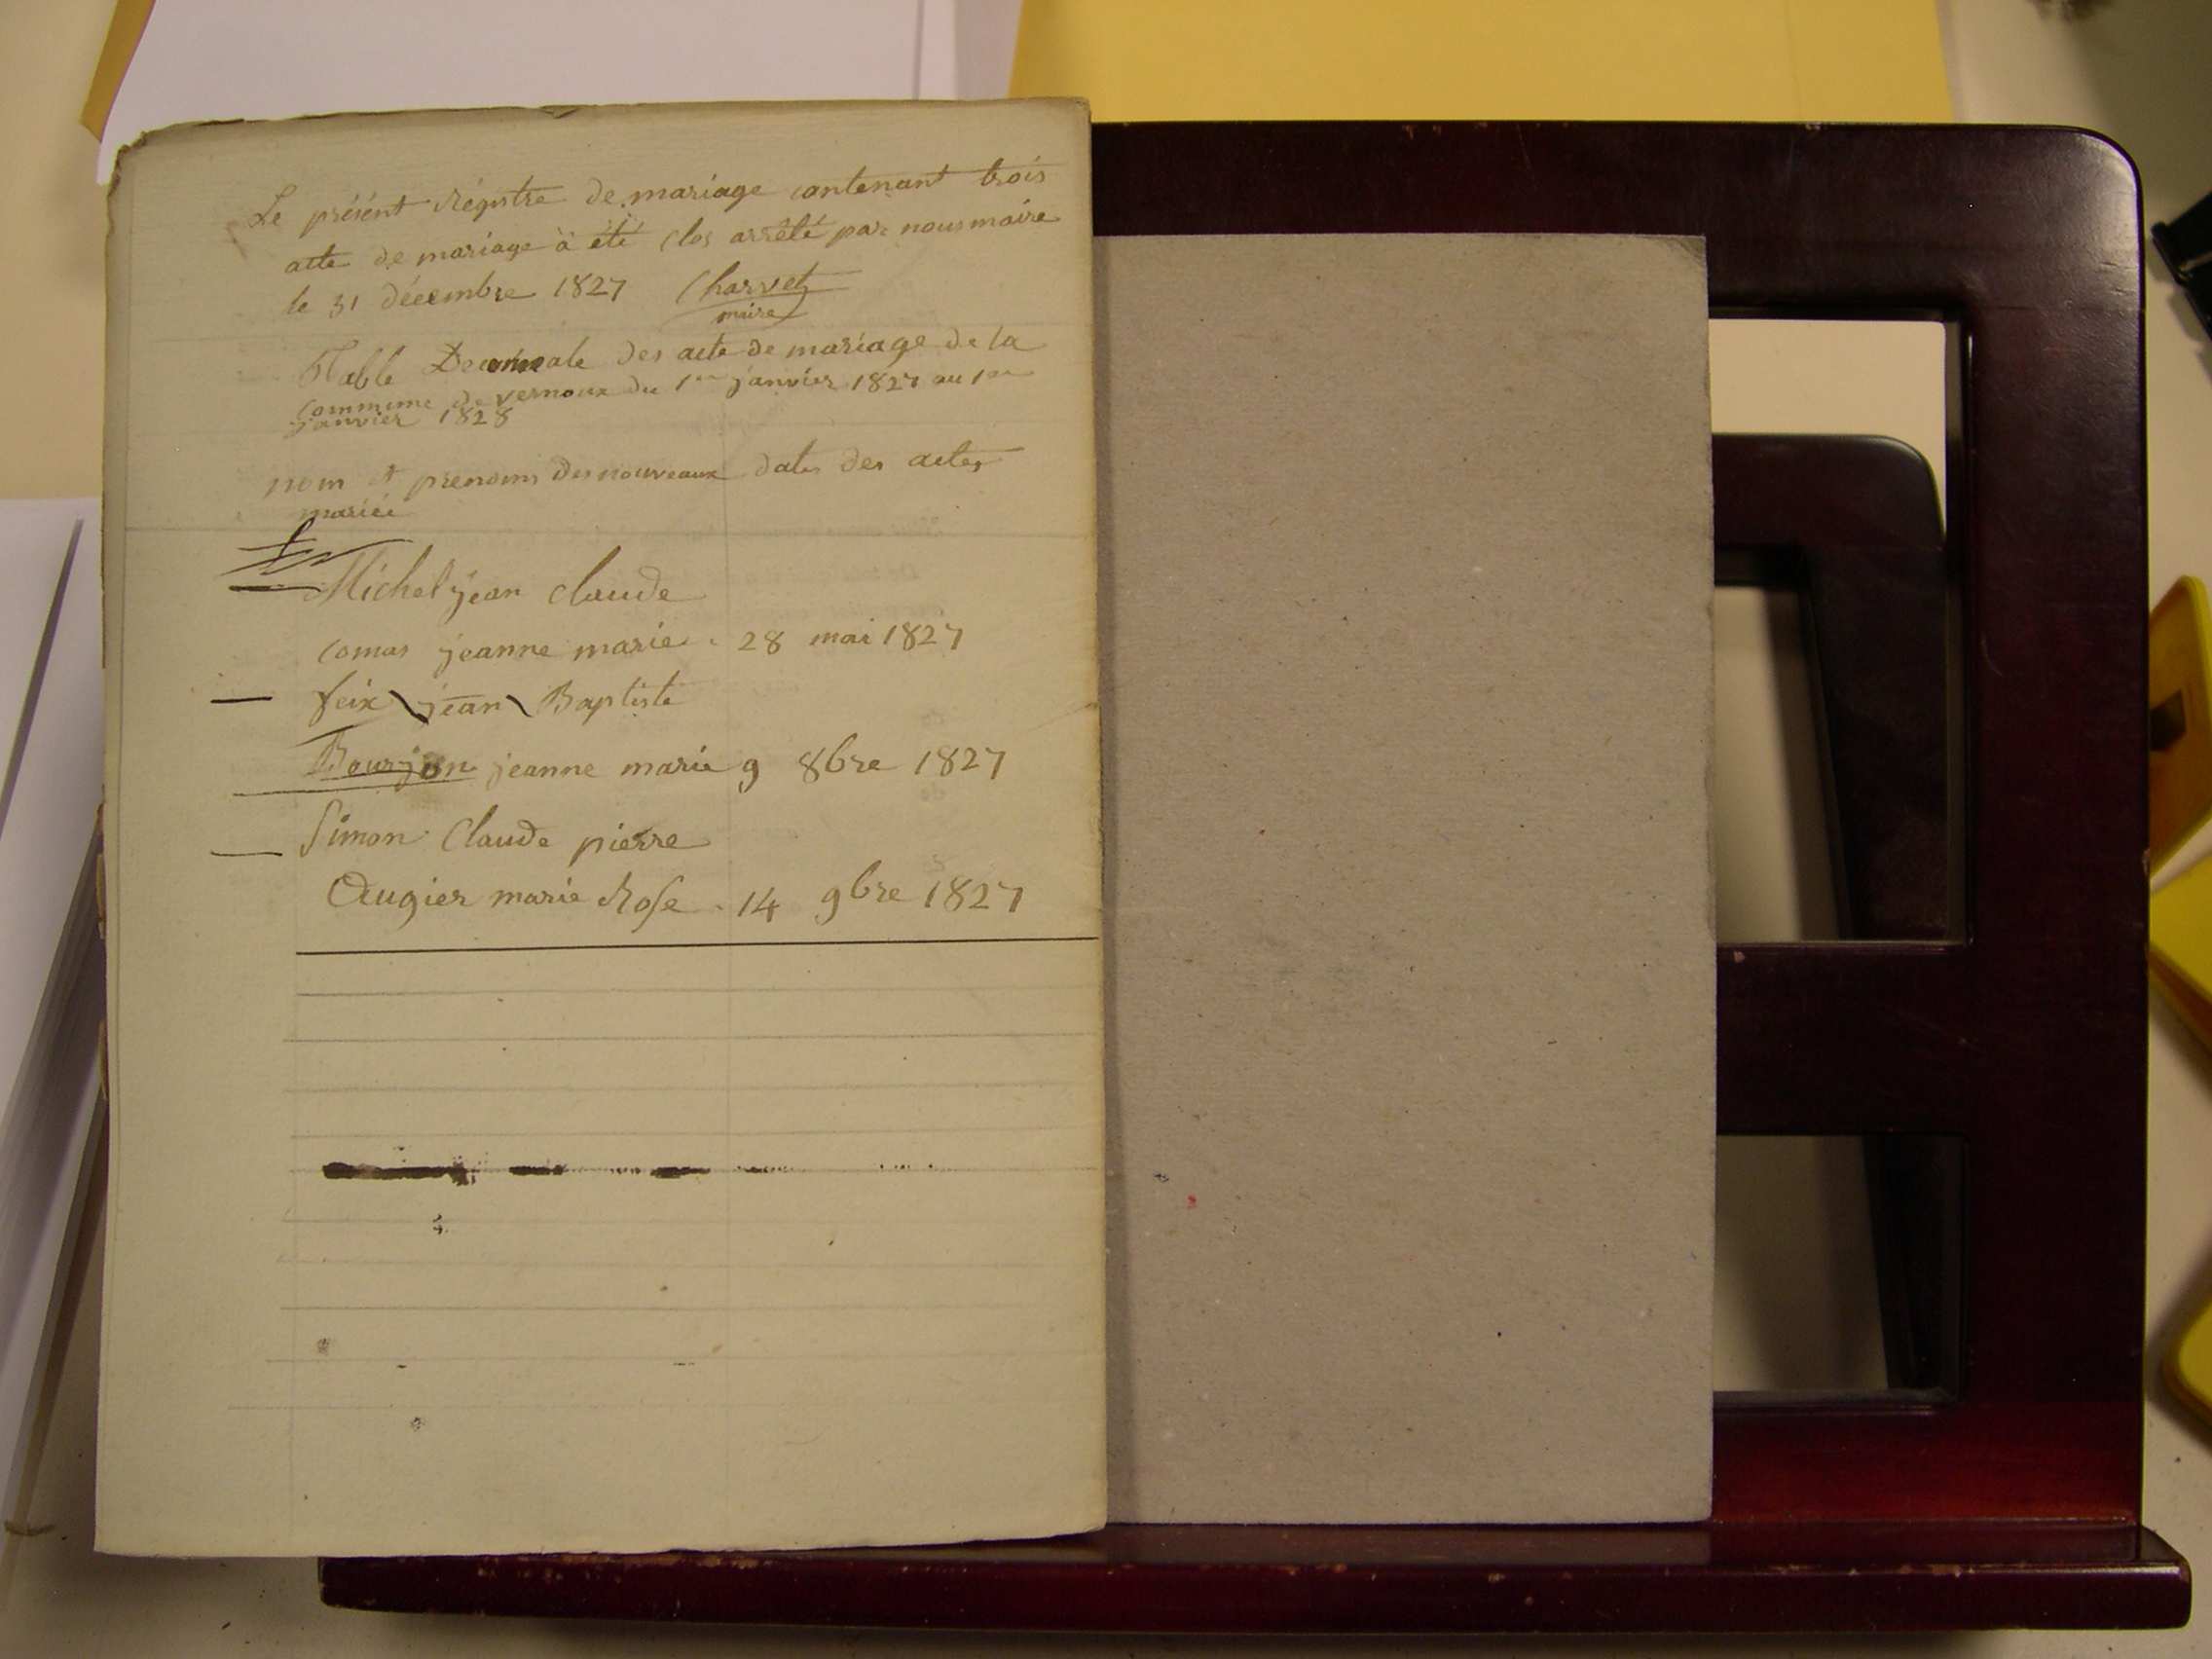 Le présent régistre de mariage contenant trois
acte de mariage à été clos arrêté par nous maire
le 31 décembre 1827 Charvet
maire
Table Decennale des acte de mariage de la
commune de vernoux du 1er janvier 1827 au 1er
janvier 1828
nom et prenoms des nouveaux dates des actes
mariés
Michel jean claude
comas jeanne marie 28 mai 1827
feix jean Baptiste
Bourjon jeanne marie 9 8bre 1827
Simon Claude pierre
Augier marie Rose 14 9bre 1827